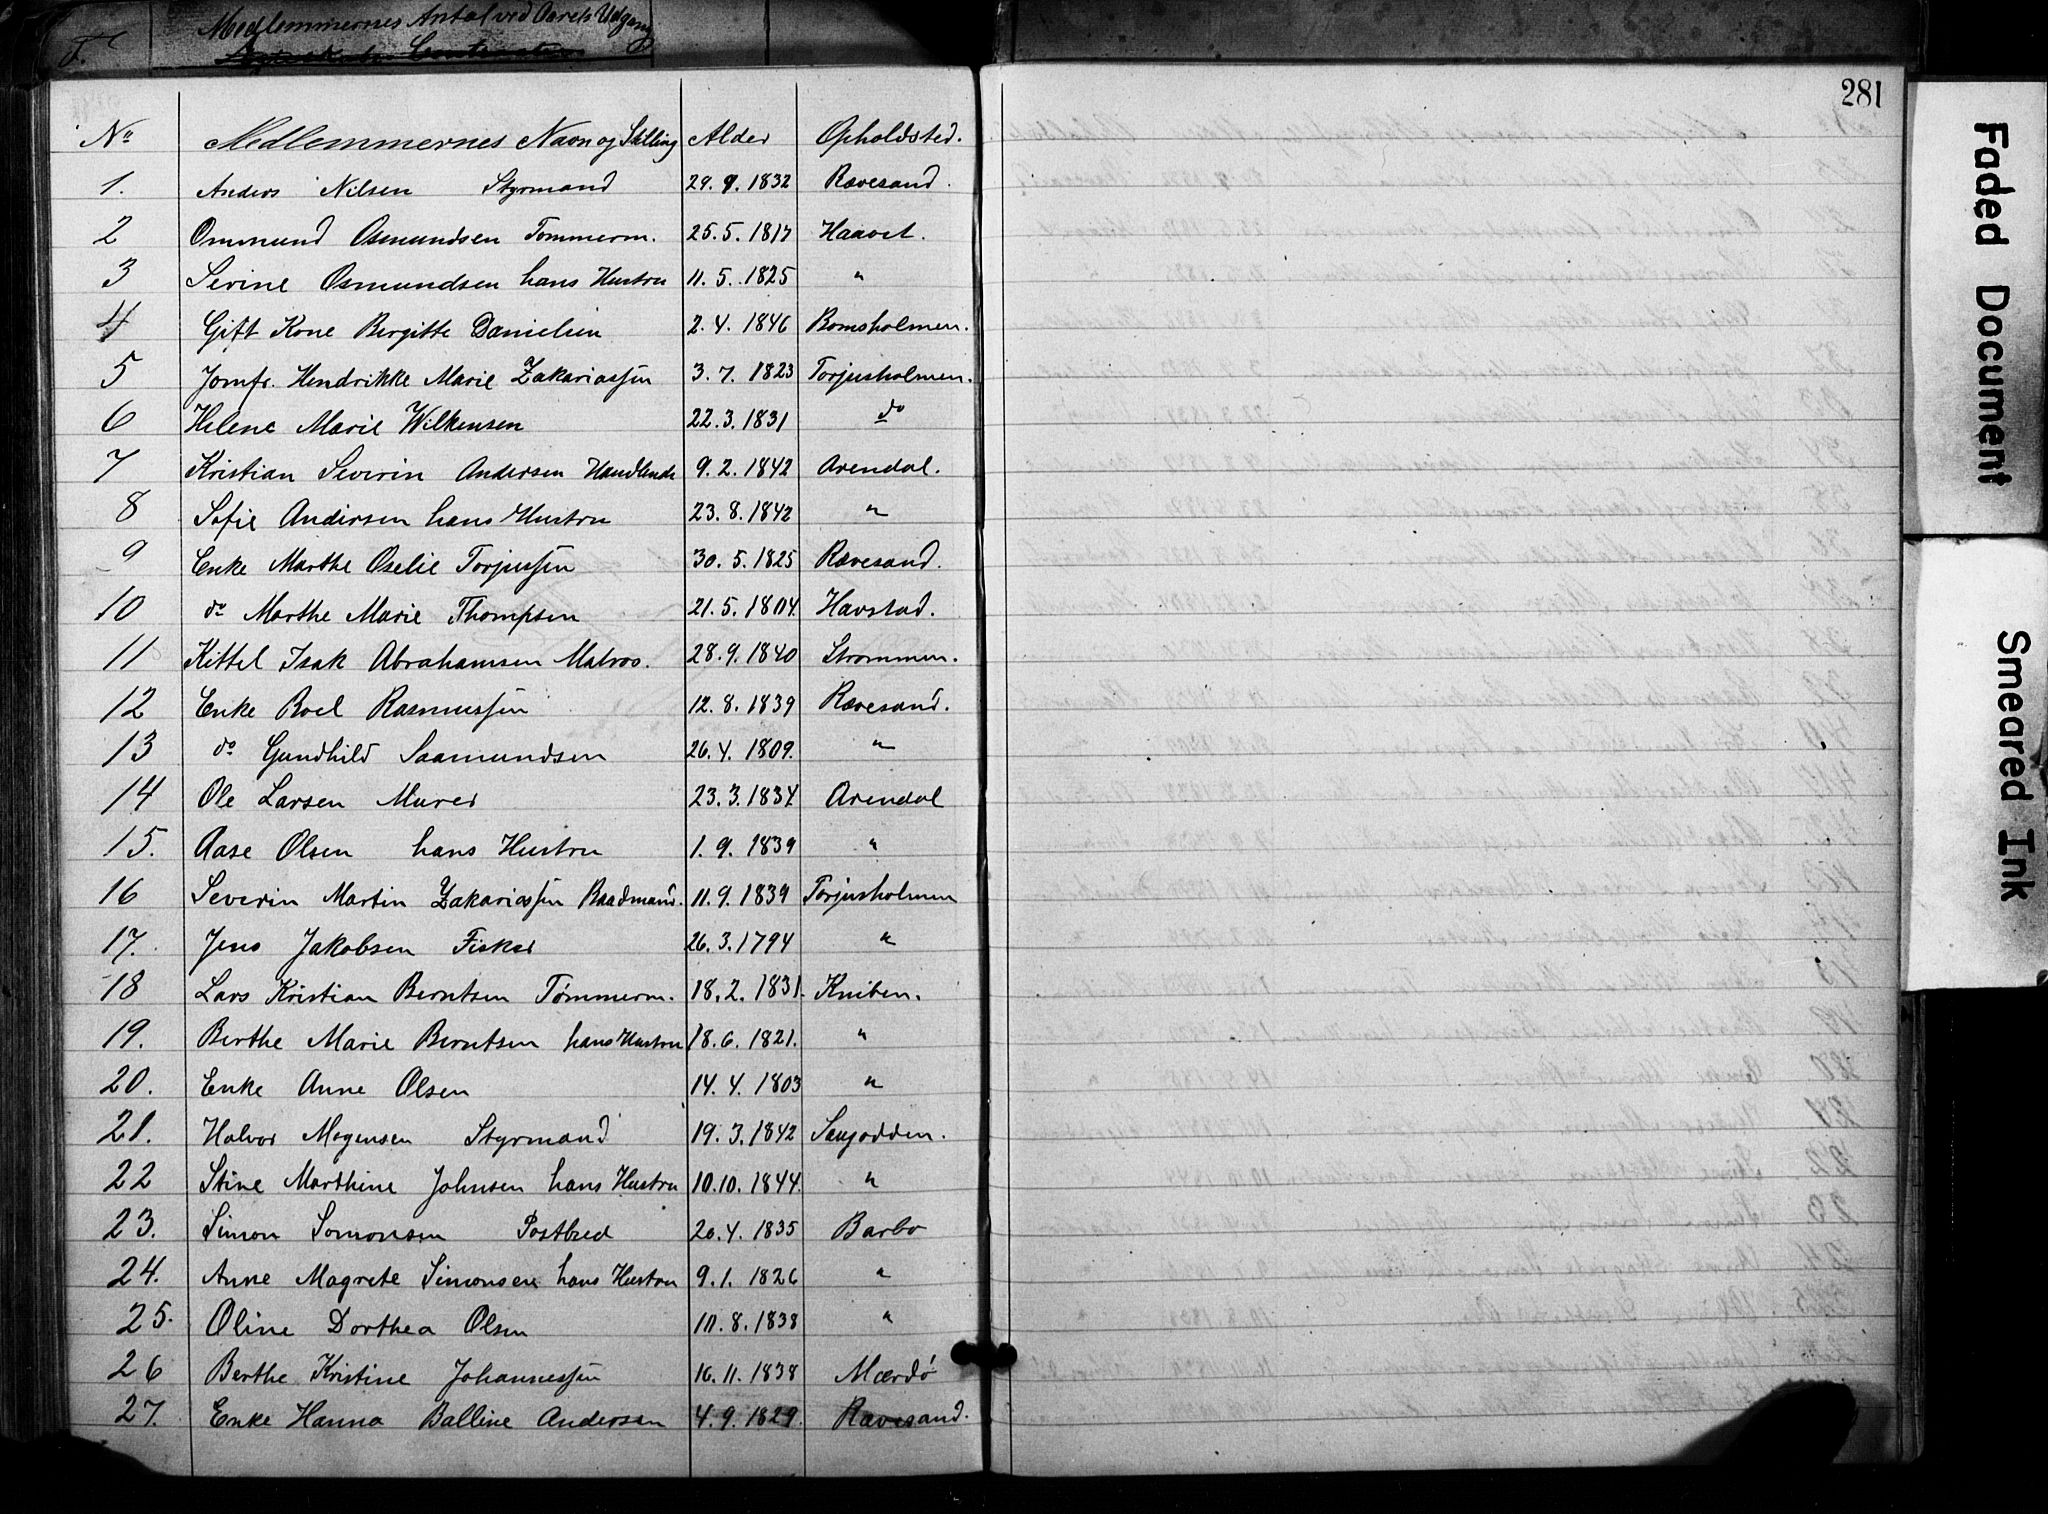 Medlemmernes Antal ved Aarets Udgang
281
No Medlemmernes Navn og Stilling Alder Opholdsted.
1. Anders Nilsen Styrmand 29.9.1832 Rævesand.
2 Ommund Osmundsen Tommerm. 25.5.1817 Haavet.
3 Sevine Osmundsen hans Hustru 11.5.1825 "
4 Gift Kone Bergitte Danielsen 2.4.1846 Bomsholmen.
5 Jomfr. Hendrikke Marie Zakariassen 3.7.1823 Torjusholmen.
6 Helene Marie Wilkensen 22.3.1831 do
7 Kristian Severin Andersen Handlende 9.2.1842 Arendal.
8 Sofie Andersen hans Hustru 23.8.1842 "
9 Enke Marthe Oselie Torjussen 30.5.1825 Rævesand.
10 do Marthe Marie Thompsen 21.5.1804. Havstad.
11 Kittel Isak Abrahamsen Matros. 28.9.1840 Strommen.
12 Enke Roel Rasmussen 12.8.1839 Rævesand.
13 do Gundhild Saamundsen 26.4.1809. "
14 Ole Larsen Murer 23.3.1834 Arendal
15. Aase Olsen hans Hustru 1.9.1839 "
16 Severin Martin Zakariassen Baadmand. 11.9.1839 Torjusholmen
17. Jens Jakobsen Fisker 26.3.1794 "
18 Lars Kristian Berntsen Tømmerm. 18.2.1831. Kniben.
19. Berthe Marie Berntsen hans Hustru 18.6.1821. "
20. Enke Anne Olsen 14.4.1803 "
21. Halvor Mogensen Styrmand 19.3.1842 Saugodden.
22 Stine Marthine Johnsen hans Hustru 10.10.1844. "
23. Simon Somonsen Postbud 20.4.1835 Barbo
24. Anne Magrete Simonsen hans Hustru 9.1.1826 "
25. Oline Dorthea Olsen 10.8.1838 "
26 Berthe Kristine Johannessen 16.11.1838 Mærdø
27. Enke Hanna Balline Andersen 4.9.1829. Rævesand.
Faded Document
Smeared Ink